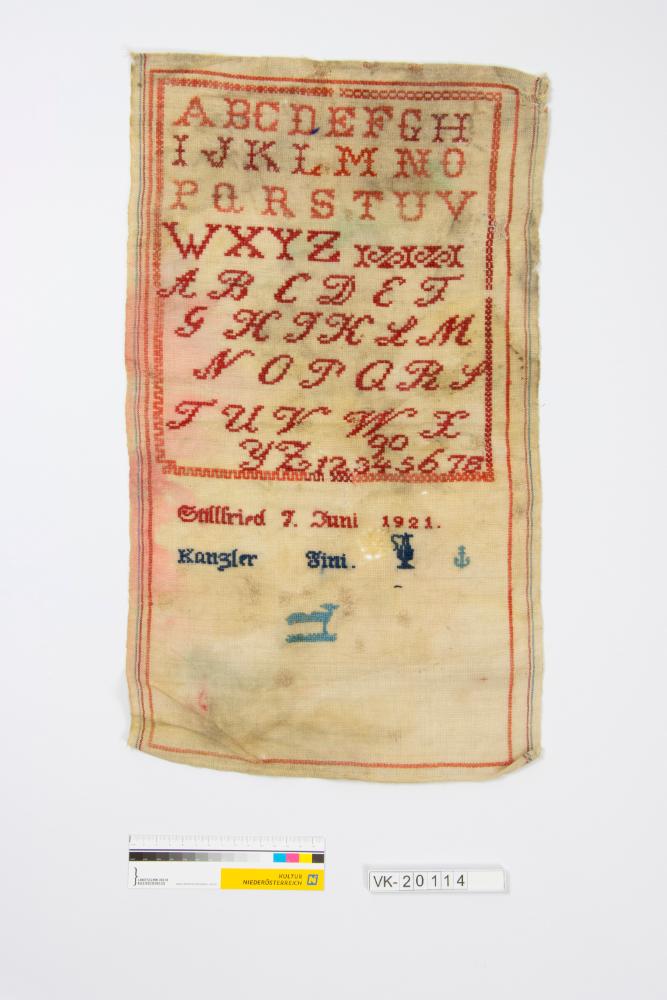 A B C D E F G H
I J K L M N O
P Q R S T U V
W X Y Z
A B C D E F
G H I K L M
N O P Q R S
T U V W X
90
Y Z 1 2 3 4 5 6 7 8
Stillfried 7. Juni 1921.
Kanzler Fini.
KULTUR
NIEDERÖSTERREICH
VK-20114